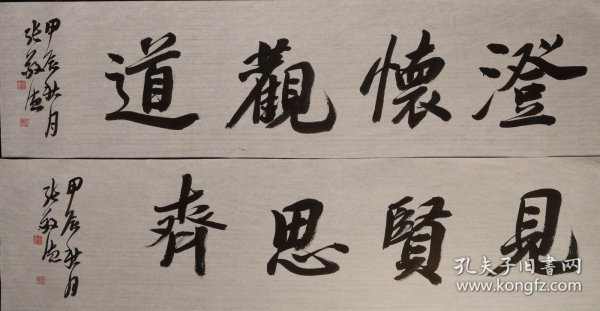 澄懷觀道
甲辰秋月
張敬德
見賢思齊
甲辰秋月
張敬德
孔夫子旧書网
www.kongfz.com